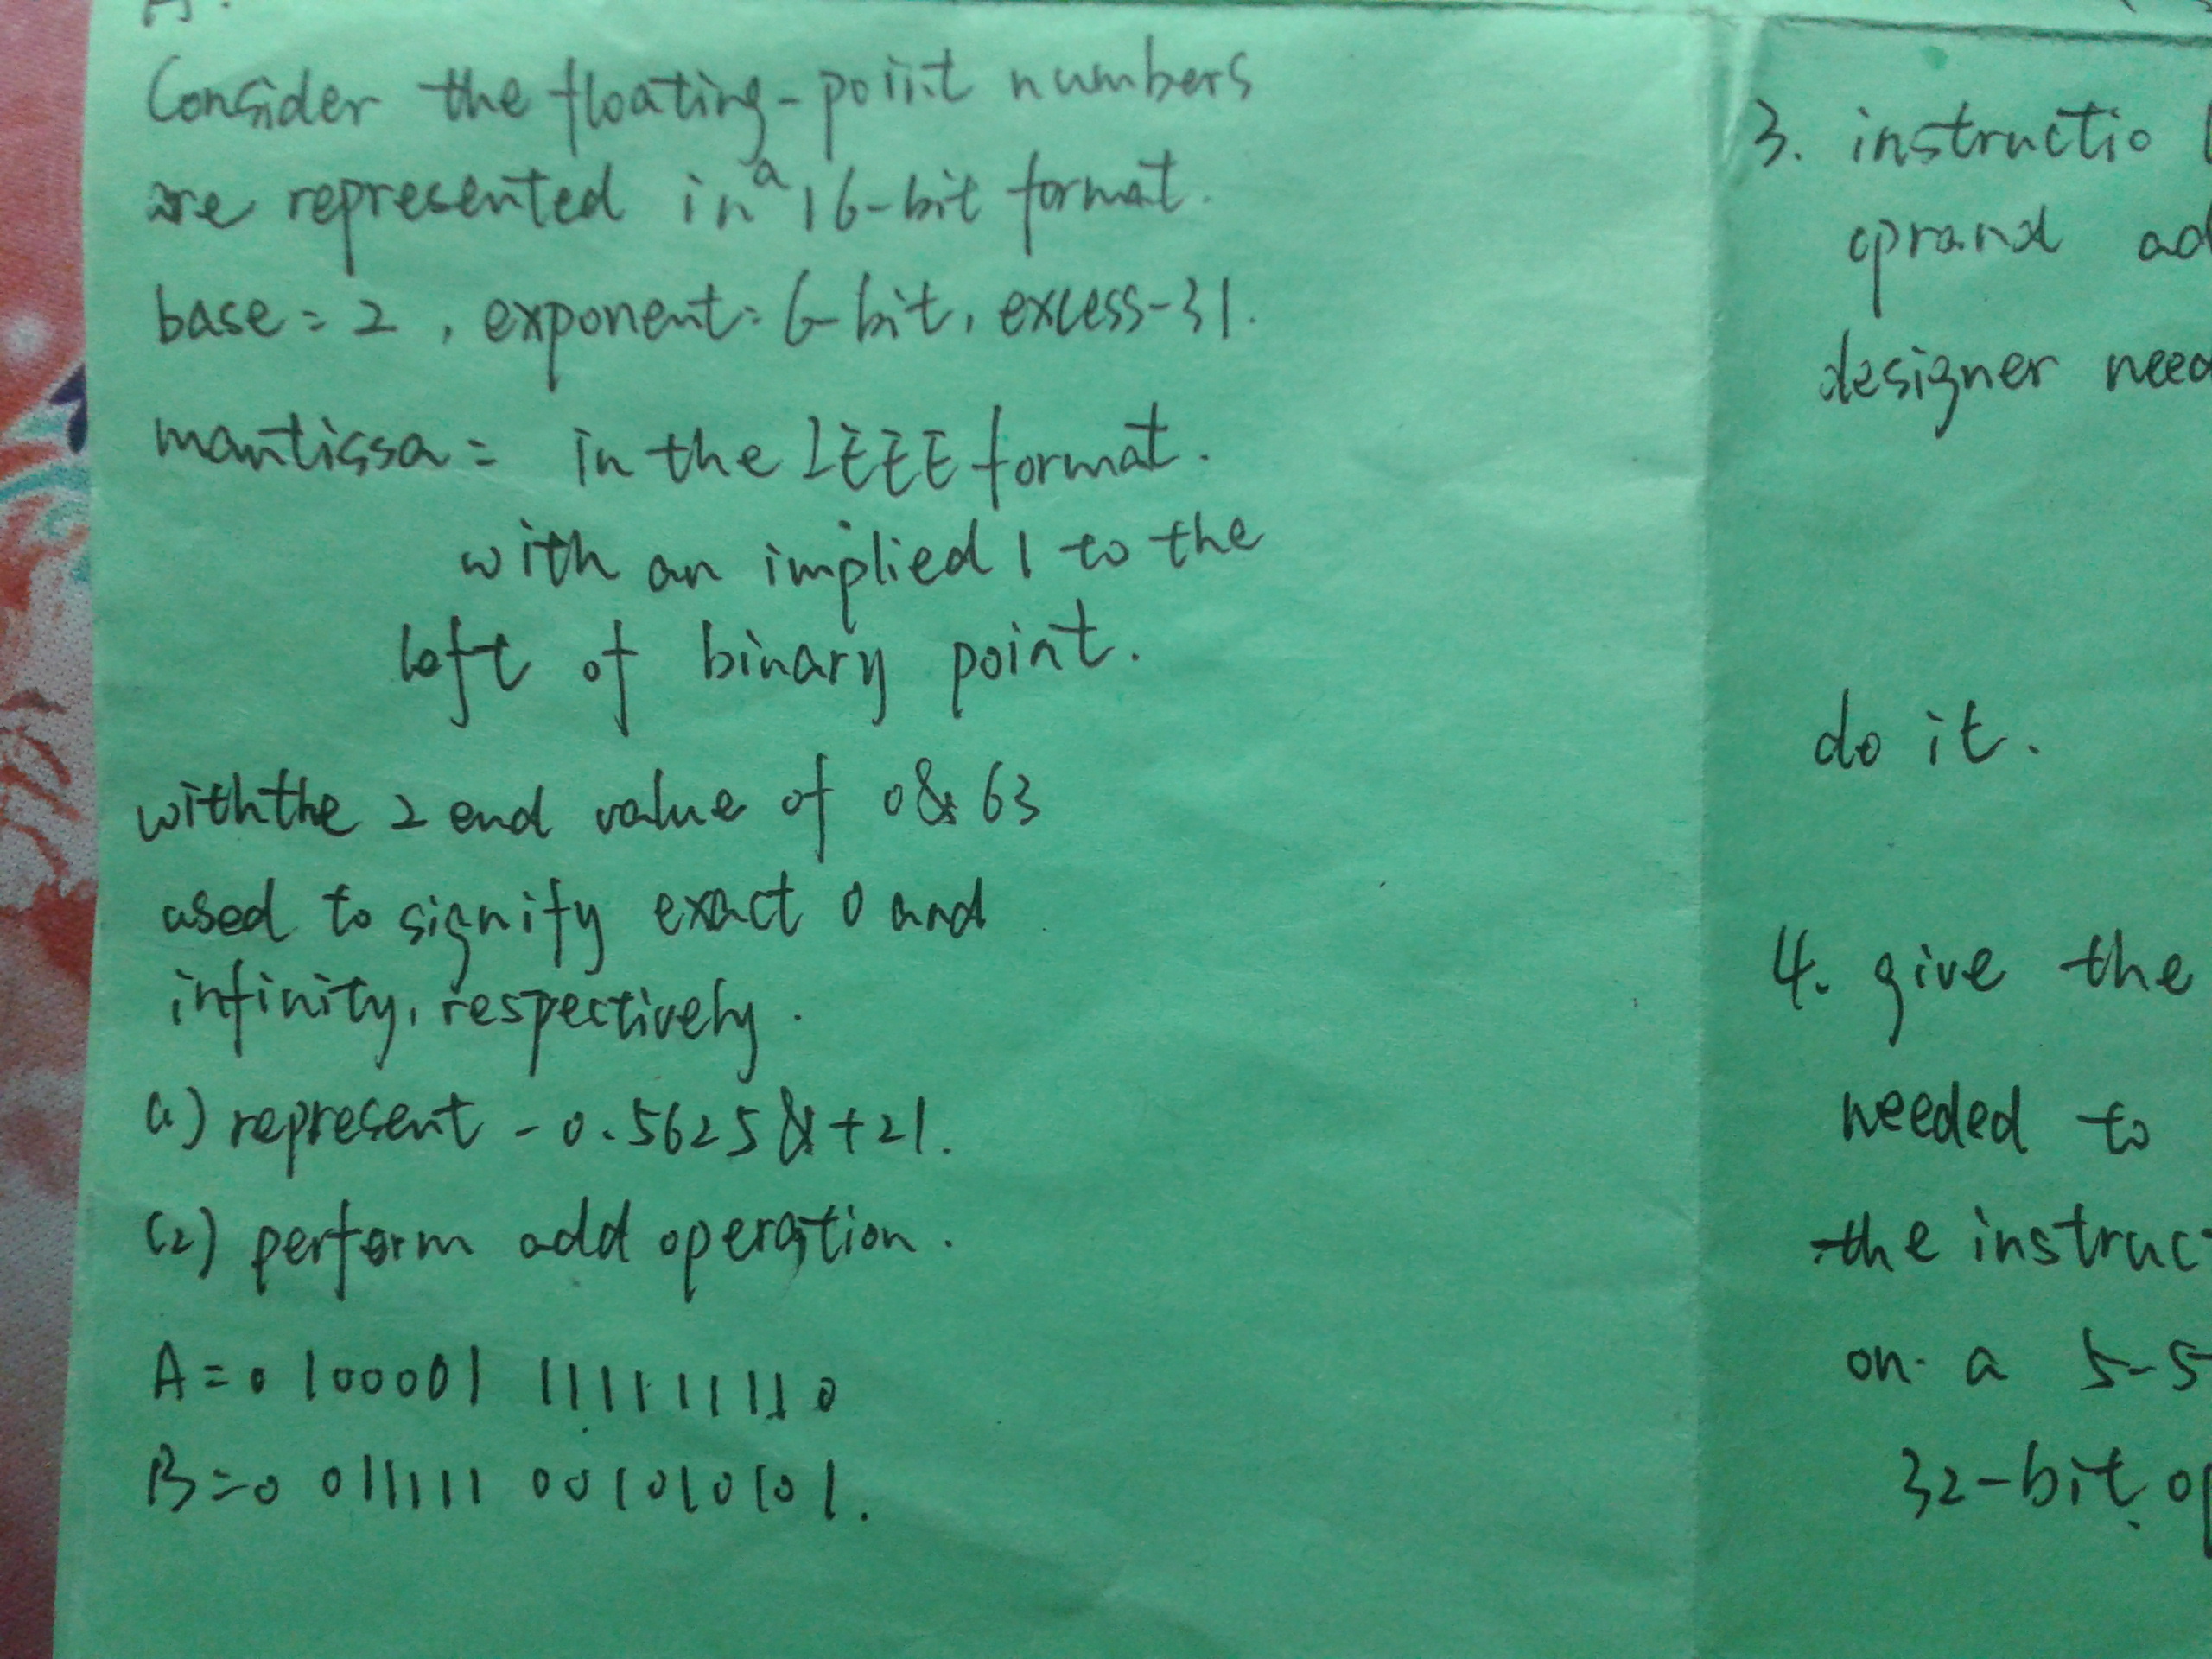 Consider the floating-point numbers
are represented in a 16-bit format.
base = 2, exponent = 6-bit, excess-31.
mantissa = in the IEEE format.
with an implied 1 to the
left of binary point.
with the 2 end value of 0 & 63
used to signify exact 0 and
infinity, respectively.
(1) represent -0.5625 & +21.
(2) perform add operation.
A = 0 100001 111111110
B = 0 011111 001010101.
3. instructio
oprand ad
designer need
do it.
4. give the
needed to
the instruc
on a 5-5
32-bit op